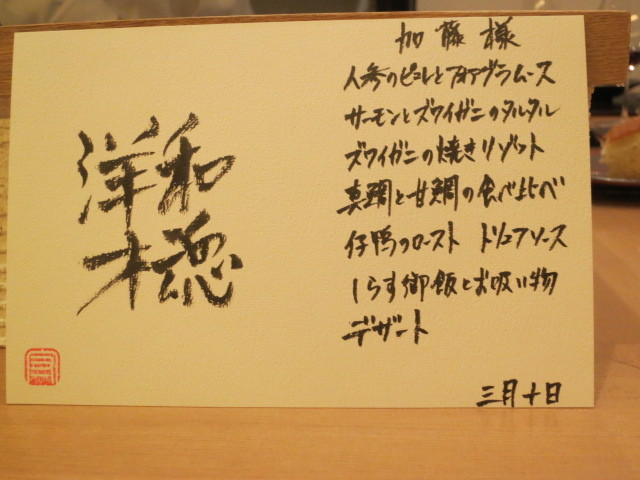 加藤様
人参のピュレとフォアグラムース
サーモンとズワイガニのタルタル
ズワイガニの焼きリゾット
真鯛と甘鯛の食べ比べ
仔鴨のロースト トリュフソース
しらす御飯とお吸い物
デザート
三月十日
和
洋